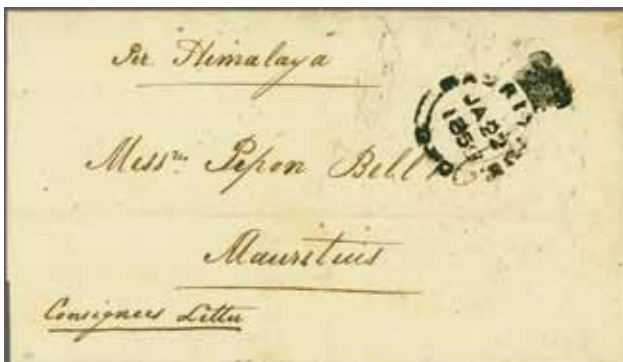 Per Himalaya
MAURITIUS
JA 22
185
Messrs Pepon Bell
Mauritius
Consignees Letter